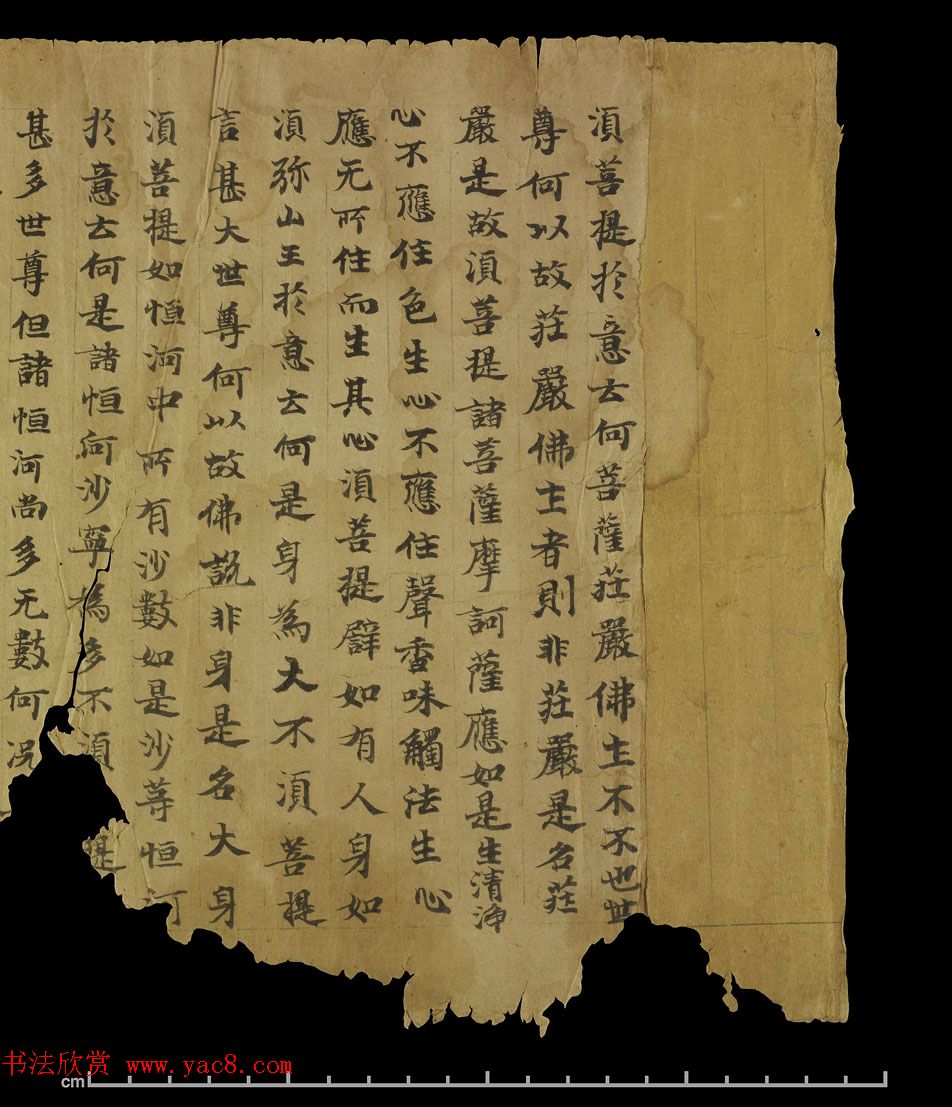 須菩提扵意云何菩薩莊嚴佛土不不也世
尊何以故莊嚴佛土者則非莊嚴是名莊
嚴是故須菩提諸菩薩摩訶薩應如是生清淨
心不應住色生心不應住聲香味觸法生心
應无所住而生其心須菩提辟如有人身如
須弥山王扵意云何是身為大不須菩提
言甚大世尊何以故佛說非身是名大身
須菩提如恒河中所有沙數如是沙等恒河
扵意云何是諸恒河沙寧為多不須菩提
甚多世尊但諸恒河尚多无數何况
书法欣赏 www.yac8.com
cm